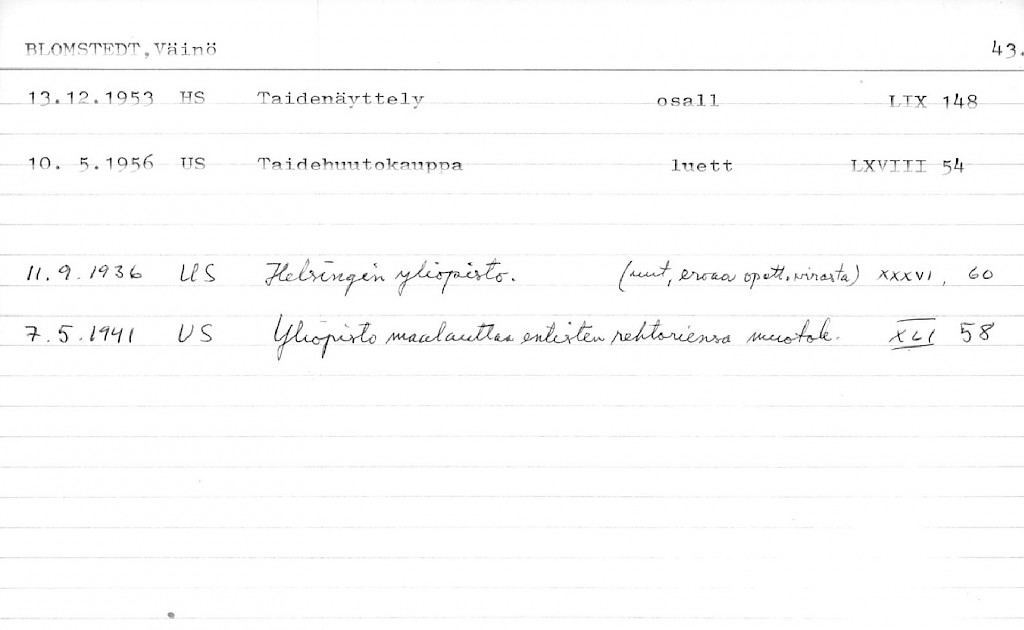 BLOMSTEDT,Väinö 43.
13.12.1953 HS Taidenäyttely osall LIX 148
10. 5.1956 US Taidehuutokauppa luett LXVIII 54
11.9.1936 US Helsingin yliopisto. (uut, eroaa opett.virasta) XXXVI, 60
7.5.1941 US Yliopisto maalauttaa entisten rehtoriensa muotok. XLI 58